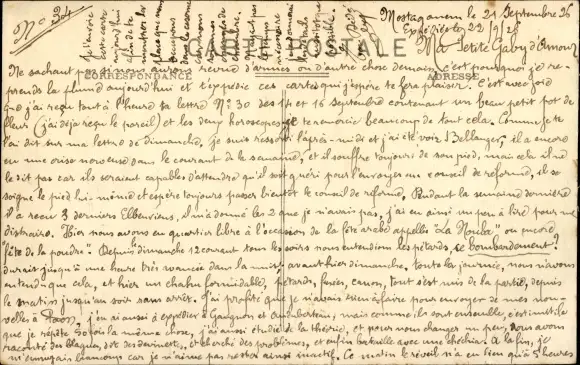 N° 34
Mostaganem le 21 Septembre 26
Expédiée le 22/9/26
Ma Petite Gaby d'Amour
CARTE POSTALE
CORRESPONDANCE
ADRESSE
Ne sachant pas si j'aurai revue d'armes ou d'autre chose demain, c'est pourquoi je re-
prends la plume aujourd'hui et t'expédie ces cartes qui j'espère te fera plaisir. C'est avec joie
que j'ai reçu tout à l'heure ta lettre N° 30 des 14 et 16 Septembre contenant un beau petit pot de
fleurs (j'ai déjà reçu le pareil) et les deux horoscopes, je te remercie beaucoup de tout cela. Comme je te
l'ai dit sur ma lettre de dimanche, je suis ressorti l'après-midi et j'ai été voir Bellanger, il a encore
eu une crise nerveuse dans le courant de la semaine, et il souffre toujours de son pied, mais cela il ne
le dit pas car ils seraient capables d'attendre qu'il soit guéri pour l'envoyer au conseil de réforme, il se
soigne le pied lui-même et espère toujours passer bientôt le conseil de réforme. Pendant la semaine dernière
il a reçu 3 derniers Elbeuviens, il m'a donné les 2 que je n'avais pas, j'ai eu ainsi un peu à lire pour me
distraire. Hier nous avons eu quartier libre à l'occasion de la fête arabe appelée "La Mouled" ou encore
"fête de la poudre". Depuis dimanche 12 courant tous les soirs nous entendions les pétards, ce bombardement
durait jusqu'à une heure très avancée dans la nuit, avant hier dimanche, toute la journée, nous n'avons
entendu que cela, et hier un chahut formidable, pétards, fusées, canon, tout s'est mis de la partie, depuis
le matin jusqu'au soir sans arrêt. J'ai profité que je n'avais rien à faire pour envoyer de mes nou-
velles à Paon, j'en ai aussi à expédier à Gaugnon et Aubertein, mais comme ils sont ensemble, c'est inutile
que je répète 50 fois la même chose, j'ai aussi étudié de la théorie, et pour nous changer un peu, nous avons
raconté des blagues, dit des devinettes, et cherché des problèmes, et enfin bataille avec une chéchia. A la fin, je
m'ennuyais beaucoup car je n'aime pas rester ainsi inactif. Ce matin le réveil n'a eu lieu qu'à 5 heures